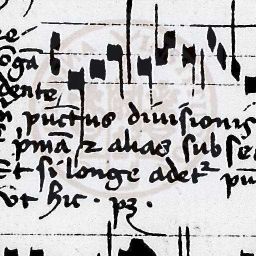 re
ogā
dente
n punctus divisionis
pmā ⁊ alias sub se
Et si longe adetr pu
ut hic. pz.